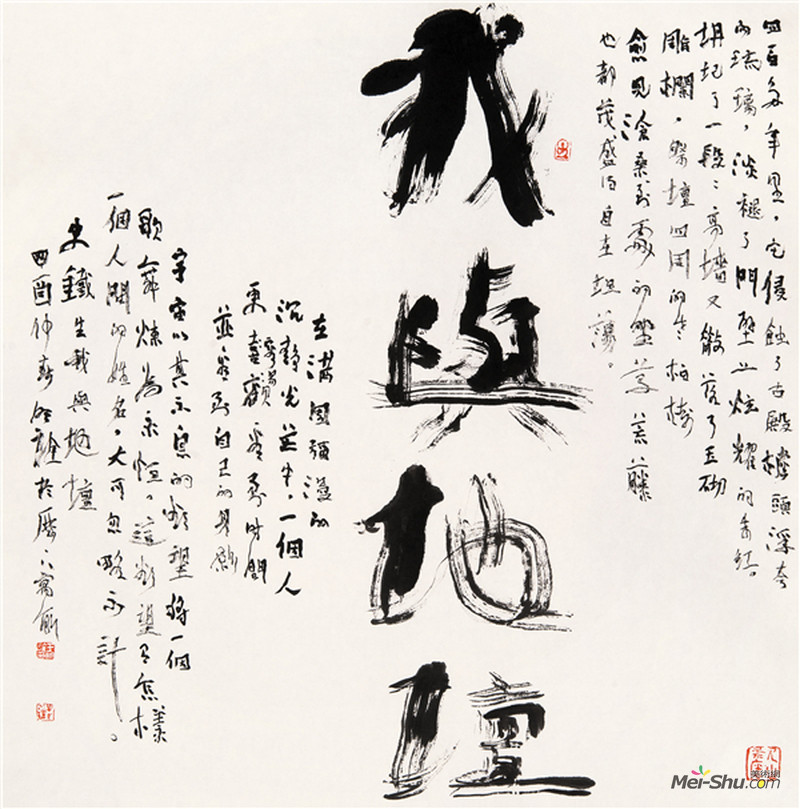 四百多年里，它侵蝕了古殿檐頭浮夸
的琉璃，淡褪了門壁上炫耀的朱红。
坍圮了一段〻高墻又散落了玉砌
雕欄，祭壇四周的老柏樹
愈見滄桑到處的野草荒藤
也都茂盛得自在坦蕩。
我與地壇
在滿園彌漫的
沉静光芒中，一個人
更 看到時間
並看到自己的身影
宇宙以其不息的欲望將一個
歌舞煉為永恒。這欲望有怎樣
一個人間的姓名，大可忽略不計。
史鐵生我與地壇
酉仲春 於歷下
美術網
Mei-Shu.com